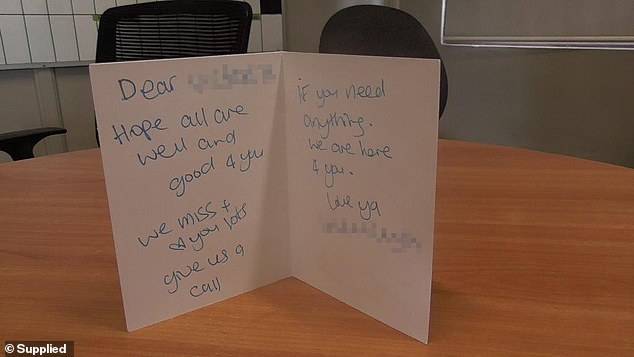 Dear
Hope all are
well and
good 4 you
we miss +
you lots
give us a
call
if you need
anything.
we are here
4 you.
love ya
© Supplied